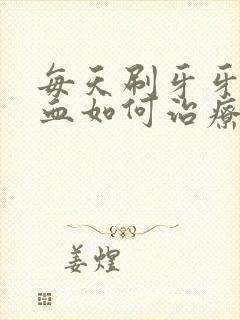 每天刷牙牙
血如何治疗
姜煌